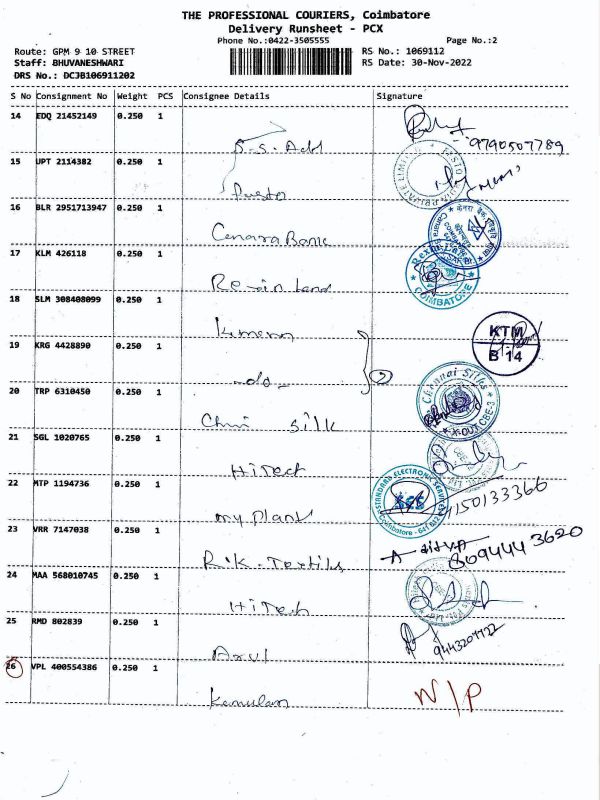 THE PROFESSIONAL COURIERS, Coimbatore
Delivery Runsheet - PCX
Phone No.:0422-3505555
Page No.:2
Route: GPM 9 10 STREET
RS No.: 1069112
Staff: BHUVANESHWARI
RS Date: 30-Nov-2022
DRS No.: DCJB106911202
S No Consignment No Weight PCS Consignee Details Signature
14 EDQ 21452149 0.250 1
S.S. Add 9790507789
15 UPT 2114382 0.250 1
Pusto
16 BLR 2951713947 0.250 1
Canara Bank
17 KLM 426118 0.250 1
Rexin Land COIMBATORE
18 SLM 308408099 0.250 1
Kumaran KTM
19 KRG 4428890 0.250 1 B 14
-do- 2
20 TRP 6310450 0.250 1 Chennai Silks
Chni Silk X-CUT CBE-3
21 SGL 1020765 0.250 1
HiTech
22 MTP 1194736 0.250 1 STANDARD ELECTRONIC SERVICES SES
my plant
23 VRR 7147038 0.250 1
R.K. Textiles 809444 3620
24 MAA 568010745 0.250 1
HiTech
25 RMD 802839 0.250 1
Arul
26 VPL 400554386 0.250 1
N/P